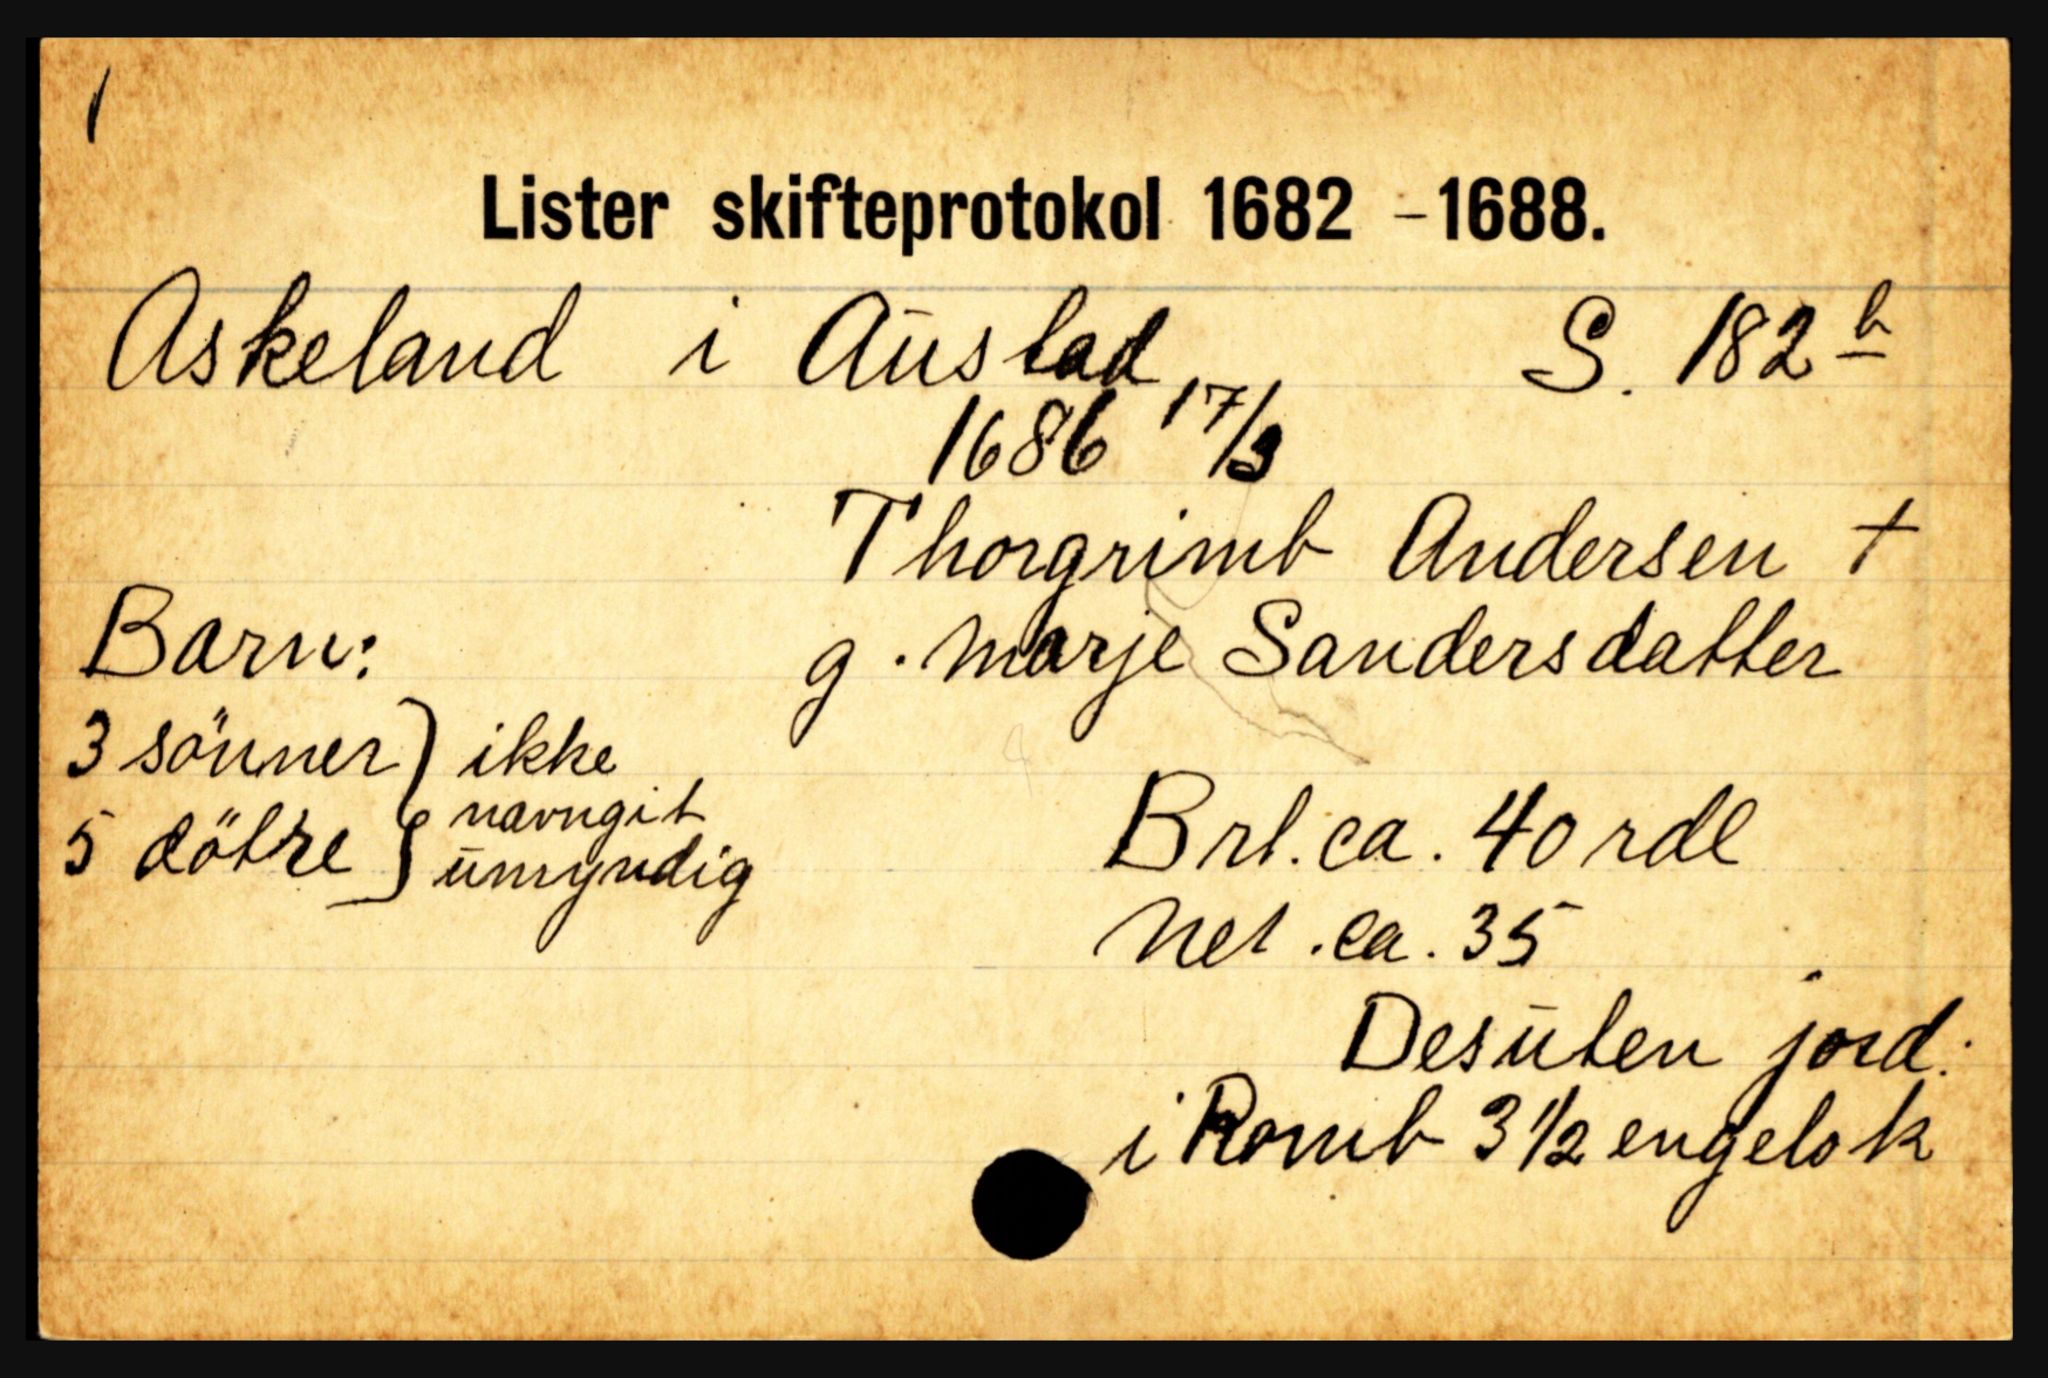 1
Lister skifteprotokol 1682 - 1688.
Askeland i Aūstad S. 182 b
1686 17/3
Thorgrimb Andersen +
g. Marje Sandersdatter
Barn:
3 sönner } ikke
navngit
5 dötre } ūmyndig
Brt. ca. 40 rdl
Net. ca. 35
Desūten jord.
i Romb 3 1/2 engelsk